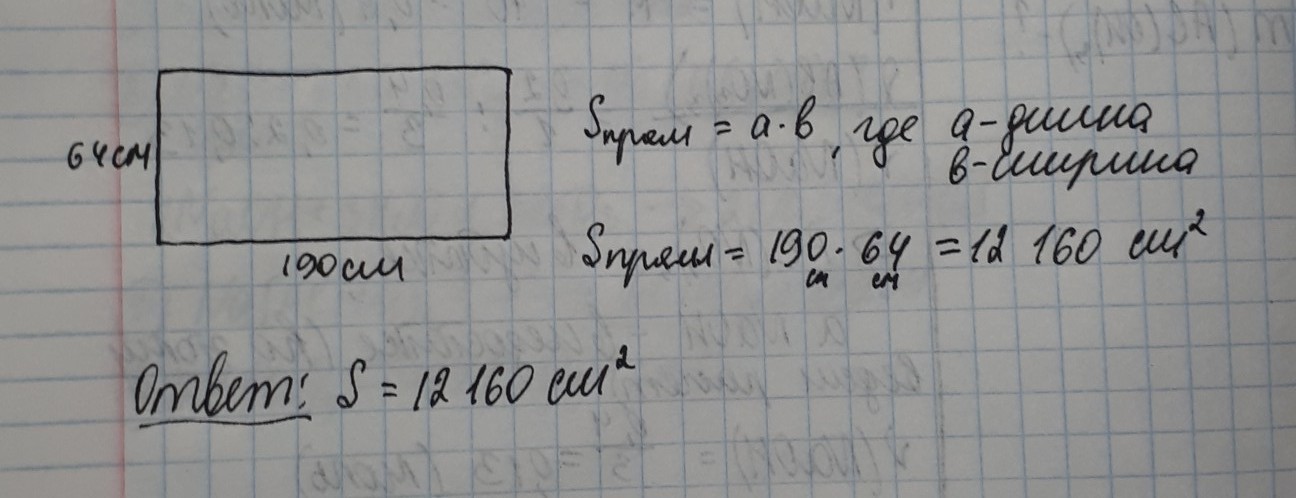 64см
190см
Sпрям = a·b, где a-длина
b-ширина
Sпрям = 190·64 = 12 160 см²
см см
Ответ: S = 12 160 см²